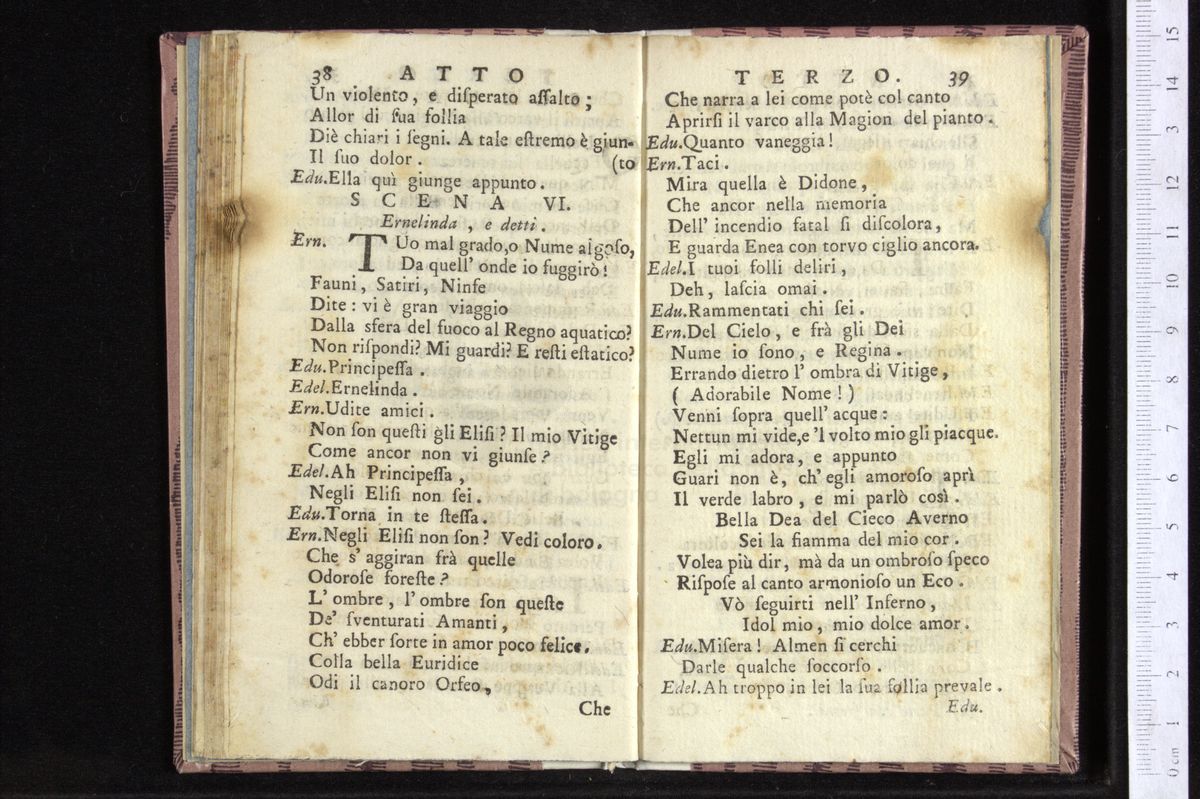 38 ATTO
Un violento, e diſperato aſſalto;
Allor di ſua follia
Diè chiari i ſegni. A tale eſtremo è giun-
Il ſuo dolor. (to
Edu.Ella qui giunge appunto.
SCENA VI.
Ernelinda, e detti.
Ern. TUo mal grado,o Nume algoſo,
Da quell' onde io fuggirò!
Fauni, Satiri, Ninfe
Dite: vi è gran viaggio
Dalla sfera del fuoco al Regno aquatico?
Non riſpondi? Mi guardi? E reſti eſtatico?
Edu.Principeſſa.
Edel.Ernelinda.
Ern.Udite amici.
Non ſon queſti gli Eliſi? Il mio Vitige
Come ancor non vi giunſe?
Edel.Ah Principeſſa,
Negli Eliſi non ſei.
Edu.Torna in te ſteſſa.
Ern.Negli Eliſi non ſon? Vedi coloro.
Che s' aggiran frà quelle
Odoroſe foreſte?
L' ombre, l' ombre ſon queſte
De' ſventurati Amanti,
Ch' ebber ſorte in amor poco felice.
Colla bella Euridice
Odi il canoro Orfeo,
Che
TERZO. 39
Che narra a lei come potè col canto
Aprirſi il varco alla Magion del pianto.
Edu.Quanto vaneggia!
Ern.Taci.
Mira quella è Didone,
Che ancor nella memoria
Dell' incendio fatal ſi diſcolora,
E guarda Enea con torvo ciglio ancora.
Edel.I tuoi folli deliri,
Deh, laſcia omai.
Edu.Rammentati chi ſei.
Ern.Del Cielo, e frà gli Dei
Nume io ſono, e Regina.
Errando dietro l' ombra di Vitige,
( Adorabile Nome! )
Venni ſopra quell' acque:
Nettun mi vide,e 'l volto mio gli piacque.
Egli mi adora, e appunto
Guari non è, ch' egli amoroſo aprì
Il verde labro, e mi parlò così.
Bella Dea del Cieco Averno
Sei la fiamma del mio cor.
Volea più dir, mà da un ombroſo ſpeco
Riſpoſe al canto armonioſo un Eco.
Vò ſeguirti nell' Inferno,
Idol mio, mio dolce amor.
Edu.Miſera! Almen ſi cerchi
Darle qualche ſoccorſo.
Edel.Ah troppo in lei la ſua follia prevale.
Edu.
0 cm 1 2 3 4 5 6 7 8 9 10 11 12 13 14 15